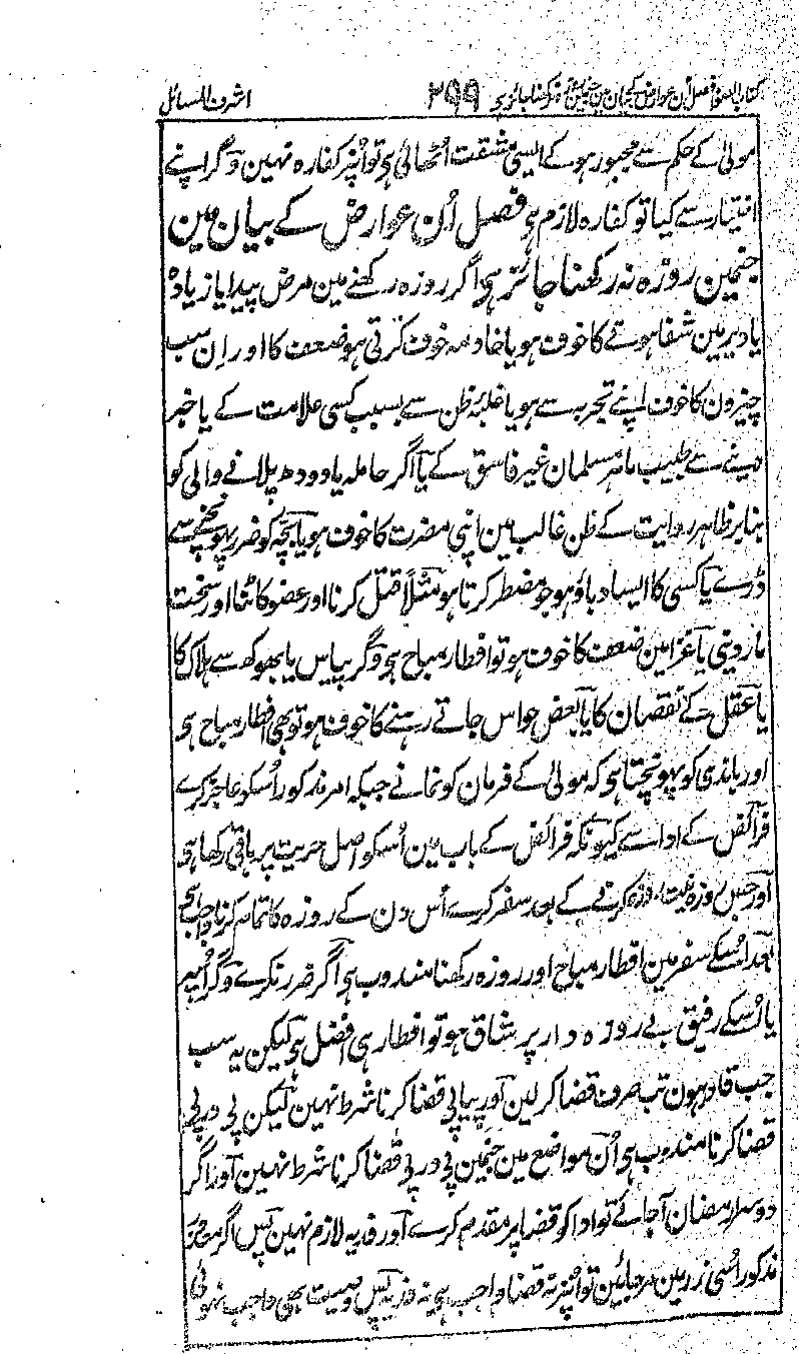 کتاب الصوم فصل ان عوارض کے بیان مین جنمین روزہ نرکھنا جائز ہی ۲۹۹ اشرف المسائل
مولیٰ کے حکم سے مجبور ہو کے ایسی مشقت اُٹھائی ہی تو اُنپر کفارہ نہین وگر اپنے
اختیار سے کیا تو کفارہ لازم ہی فصل اُن عوارض کے بیان مین
جنمین روزہ نہ رکھنا جائز ہی اگر روزہ رکھنے مین مرض پیدا یا زیادہ
یا دیر مین شفا ہونے کا خوف ہو یا خادمہ خوف کرتی ہو ضعف کا اور اِن سب
چیزون کا خوف اپنے تجربہ سے ہو یا غلبۂ ظن سے بسبب کسی علامت کے یا خبر
دینے سے طبیب ماہر مسلمان غیر فاسق کے یا اگر حاملہ یا دودھ پلانے والی کو
بنابر ظاہر روایت کے ظن غالب مین اپنی مضرت کا خوف ہو یا بچہ کو ضرر پہونچنے سے
ڈرے یا کسی کا ایسا دباؤ ہو جو مضطر کرتا ہو مثلاً قتل کرنا اور عضو کاٹنا اور سخت
مار دینی یا غزا مین ضعف کا خوف ہو تو افطار مباح ہی وگر پیاس یا بھوکھ سے ہلاک کا
یا عقل کے نقصان کا یا بعض حواس جاتے رہنے کا خوف ہو تو بھی افطار مباح ہی
اور باندی کو پہونچتا ہی کہ مولیٰ کے فرمان کو نمانے جبکہ امر مذکور اُسکو عاجز کرے
فرائض کے ادا سے کیونکہ فرائض کے باب مین اُسکو اصل حریت پر باقی رکھا ہی
اور جس روز نیت روزہ کرنے کے بعد سفر کرے اُس دن کے روزہ کا تمام کرنا واجب ہی
بعد اُسکے سفر مین افطار مباح اور روزہ رکھنا مندوب ہی اگر ضرر نکرے وگر اُسپر
یا اُسکے رفیق بے روزہ دار پر شاق ہو تو افطار ہی افضل ہی لیکن یہ سب
جب قادر ہون تب صرف قضا کر لین اور پیاپی قضا کرنا شرط نہین لیکن پی در پی
قضا کرنا مندوب ہی اُن مواضع مین جنمین پی در پی قضا کرنا شرط نہین اور اگر
دوسرا رمضان آجائے تو ادا کو قضا پر مقدم کرے اور فدیہ لازم نہین پس اگر
مذکور اُسی مین مرجائین تو اُنپر نہ قضا واجب ہی نہ فدیہ پس وصیت بھی واجب نہوئی